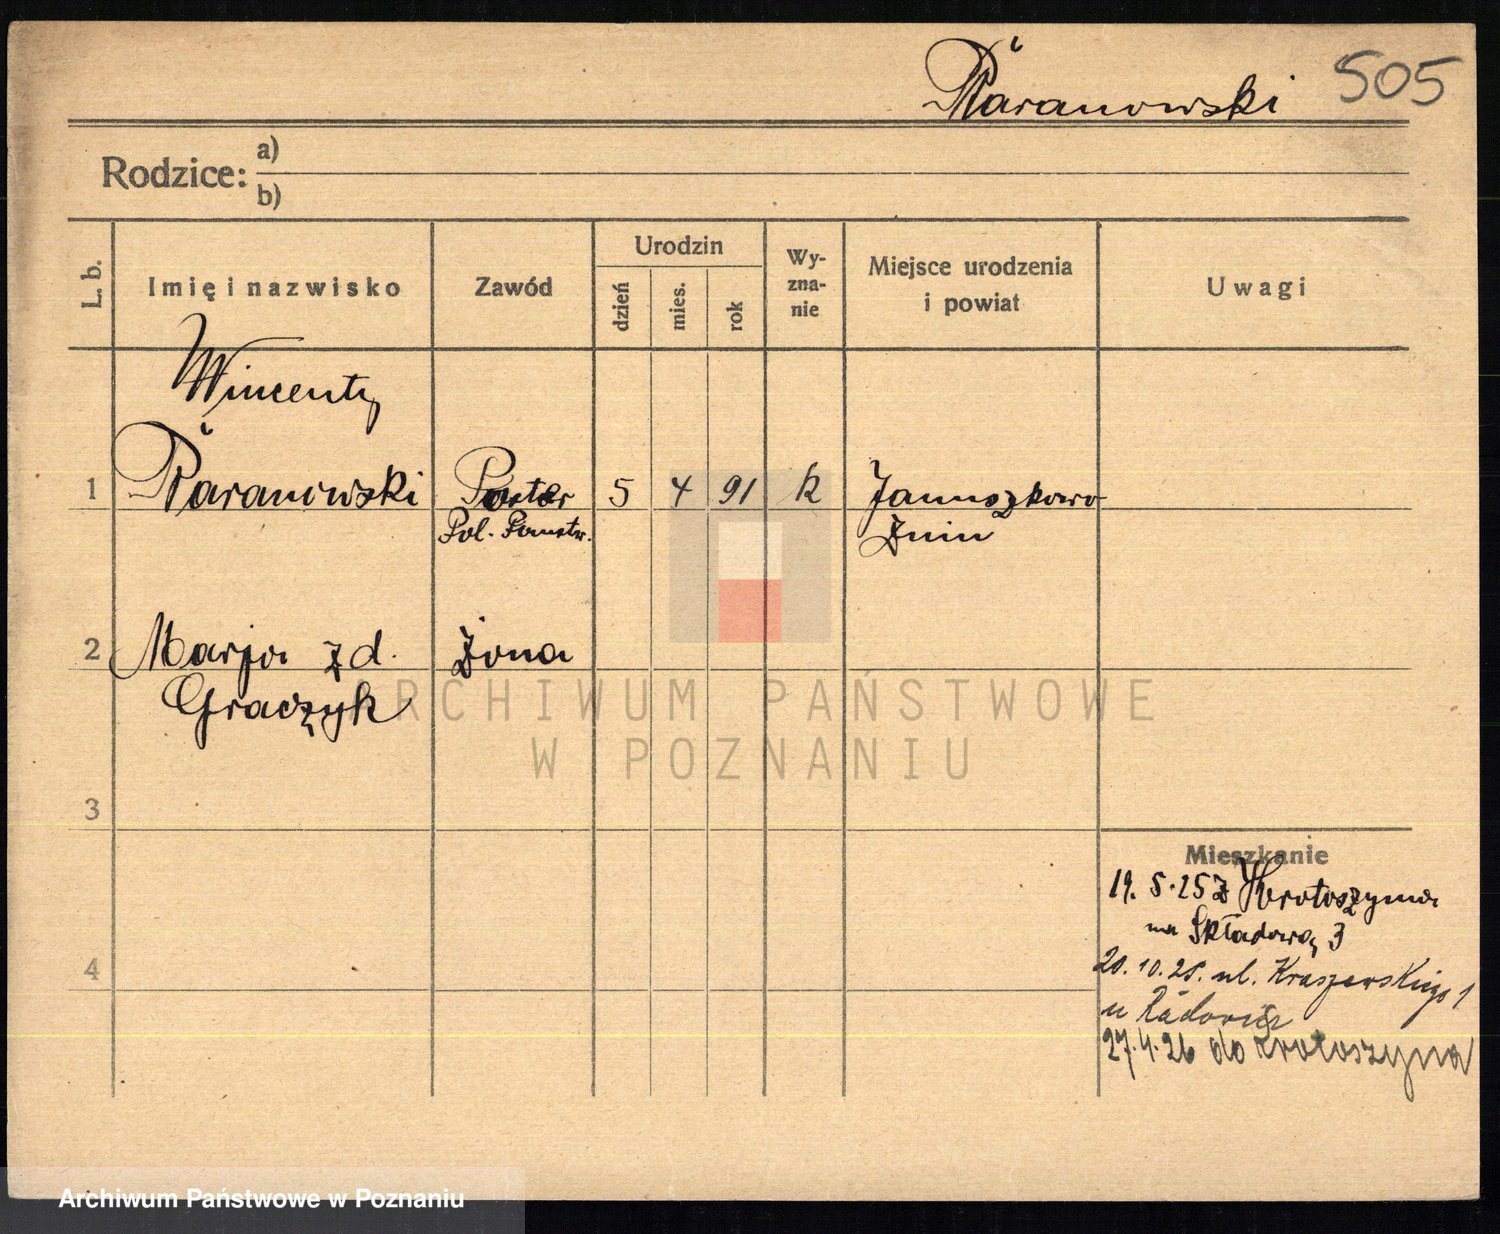 Baranowski 505
Rodzice: a)
b)
L. b. Imię i nazwisko Zawód Urodzin dzień mies. rok Wyznanie Miejsce urodzenia i powiat Uwagi
Wincenty
1 Baranowski Poster 5 4 91 k Januszkowo
Pol. Państw. Żnin
2 Marja z d. Żona
Graczyk
ARCHIWUM PAŃSTWOWE
W POZNANIU
3
Mieszkanie
19. 5. 25 z Krotoszyna
na Składową 3
4
20. 10. 25. ul. Kraszewskiego 1
u
27. 4. 26 do Krotoszyna
Archiwum Państwowe w Poznaniu